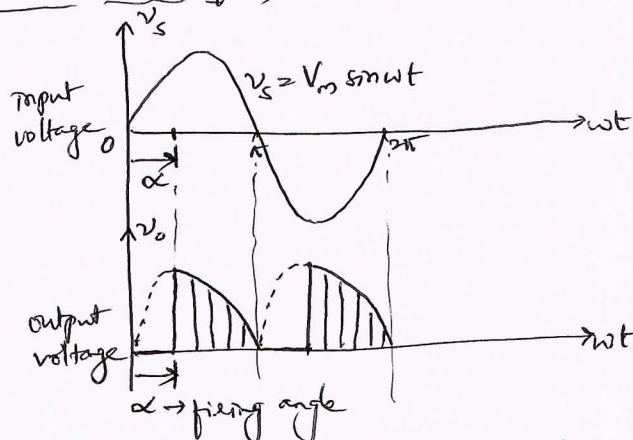 νs
νs = Vm sinωt
input
voltage
0
π
2π
ωt
α
νo
output
voltage
ωt
α → firing angle